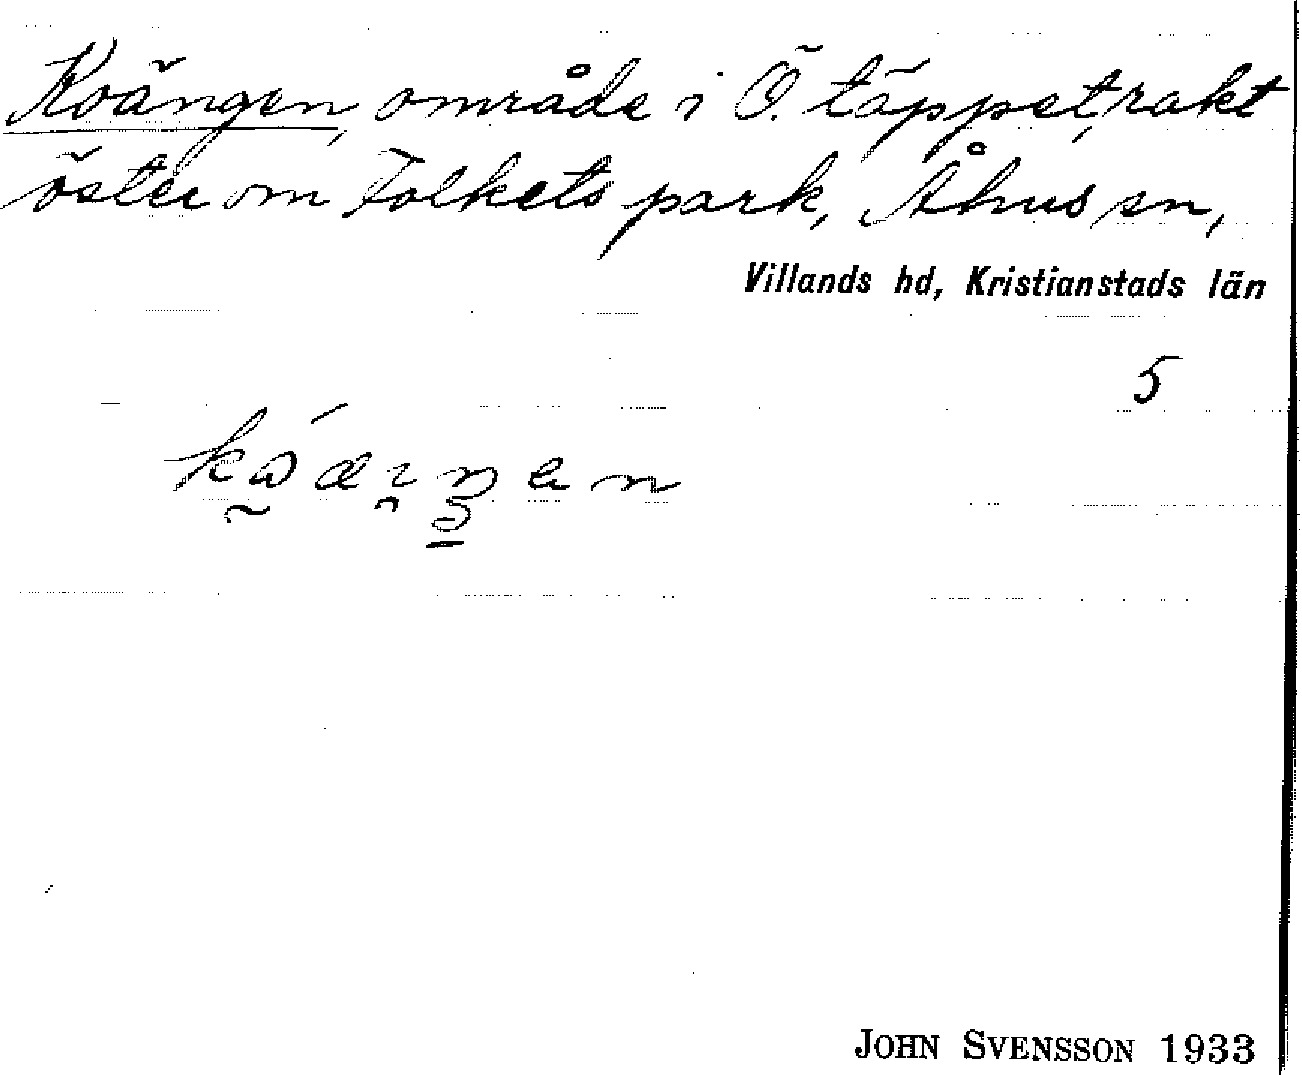 Koängen, område i Ö. täppet, rakt
öster om Folkets park, Åhus sn,
Villands hd, Kristianstads län
5
JOHN SVENSSON 1933